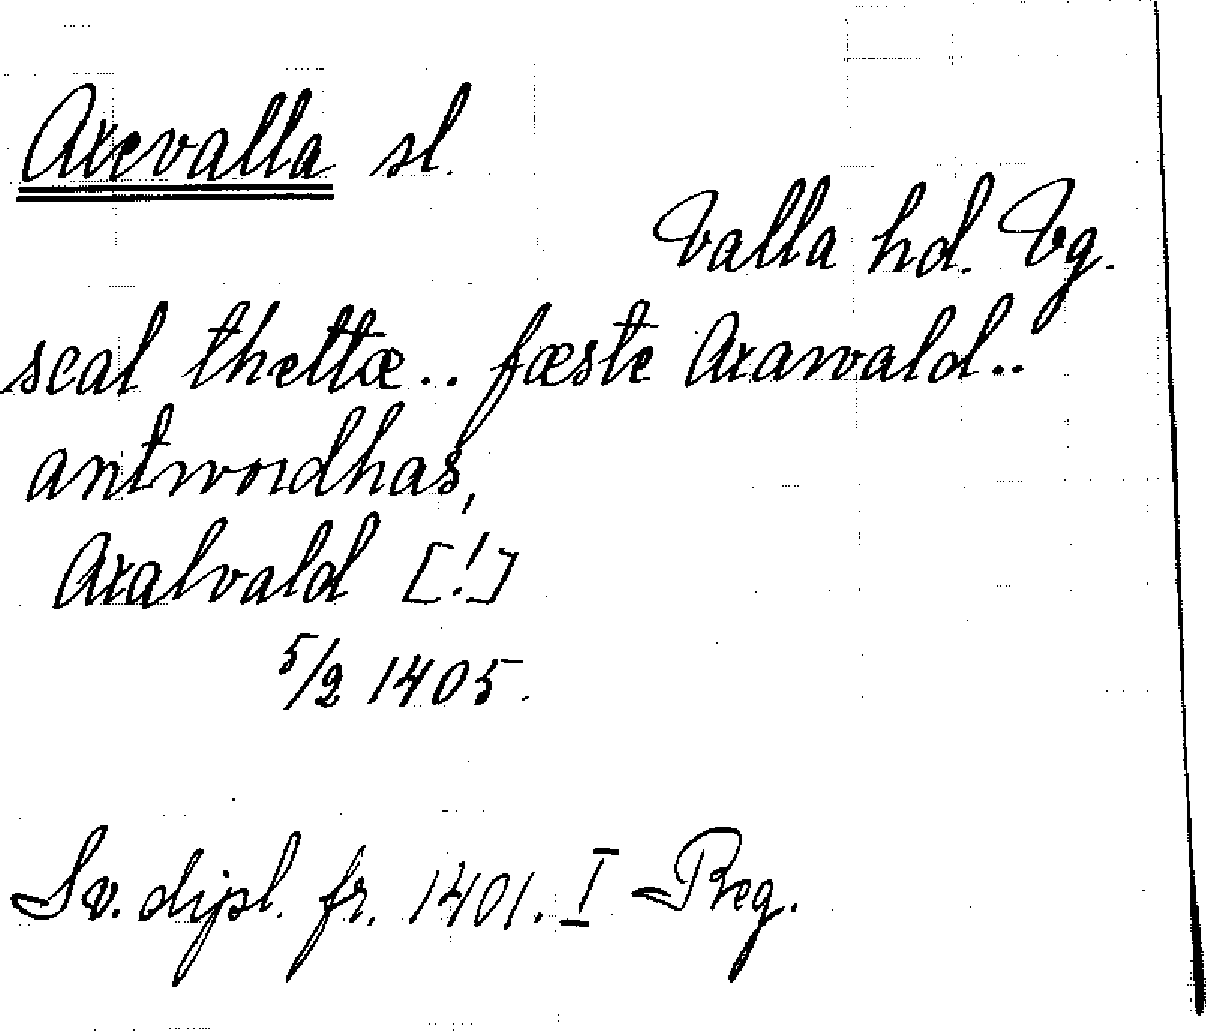 Axevalla sl.
Valla hd. Vg.
scal thettæ.. fæste Axawald..
antwordhas,
Axalvald [!]
5/2 1405.
Sv. dipl. fr. 1401. I Reg.